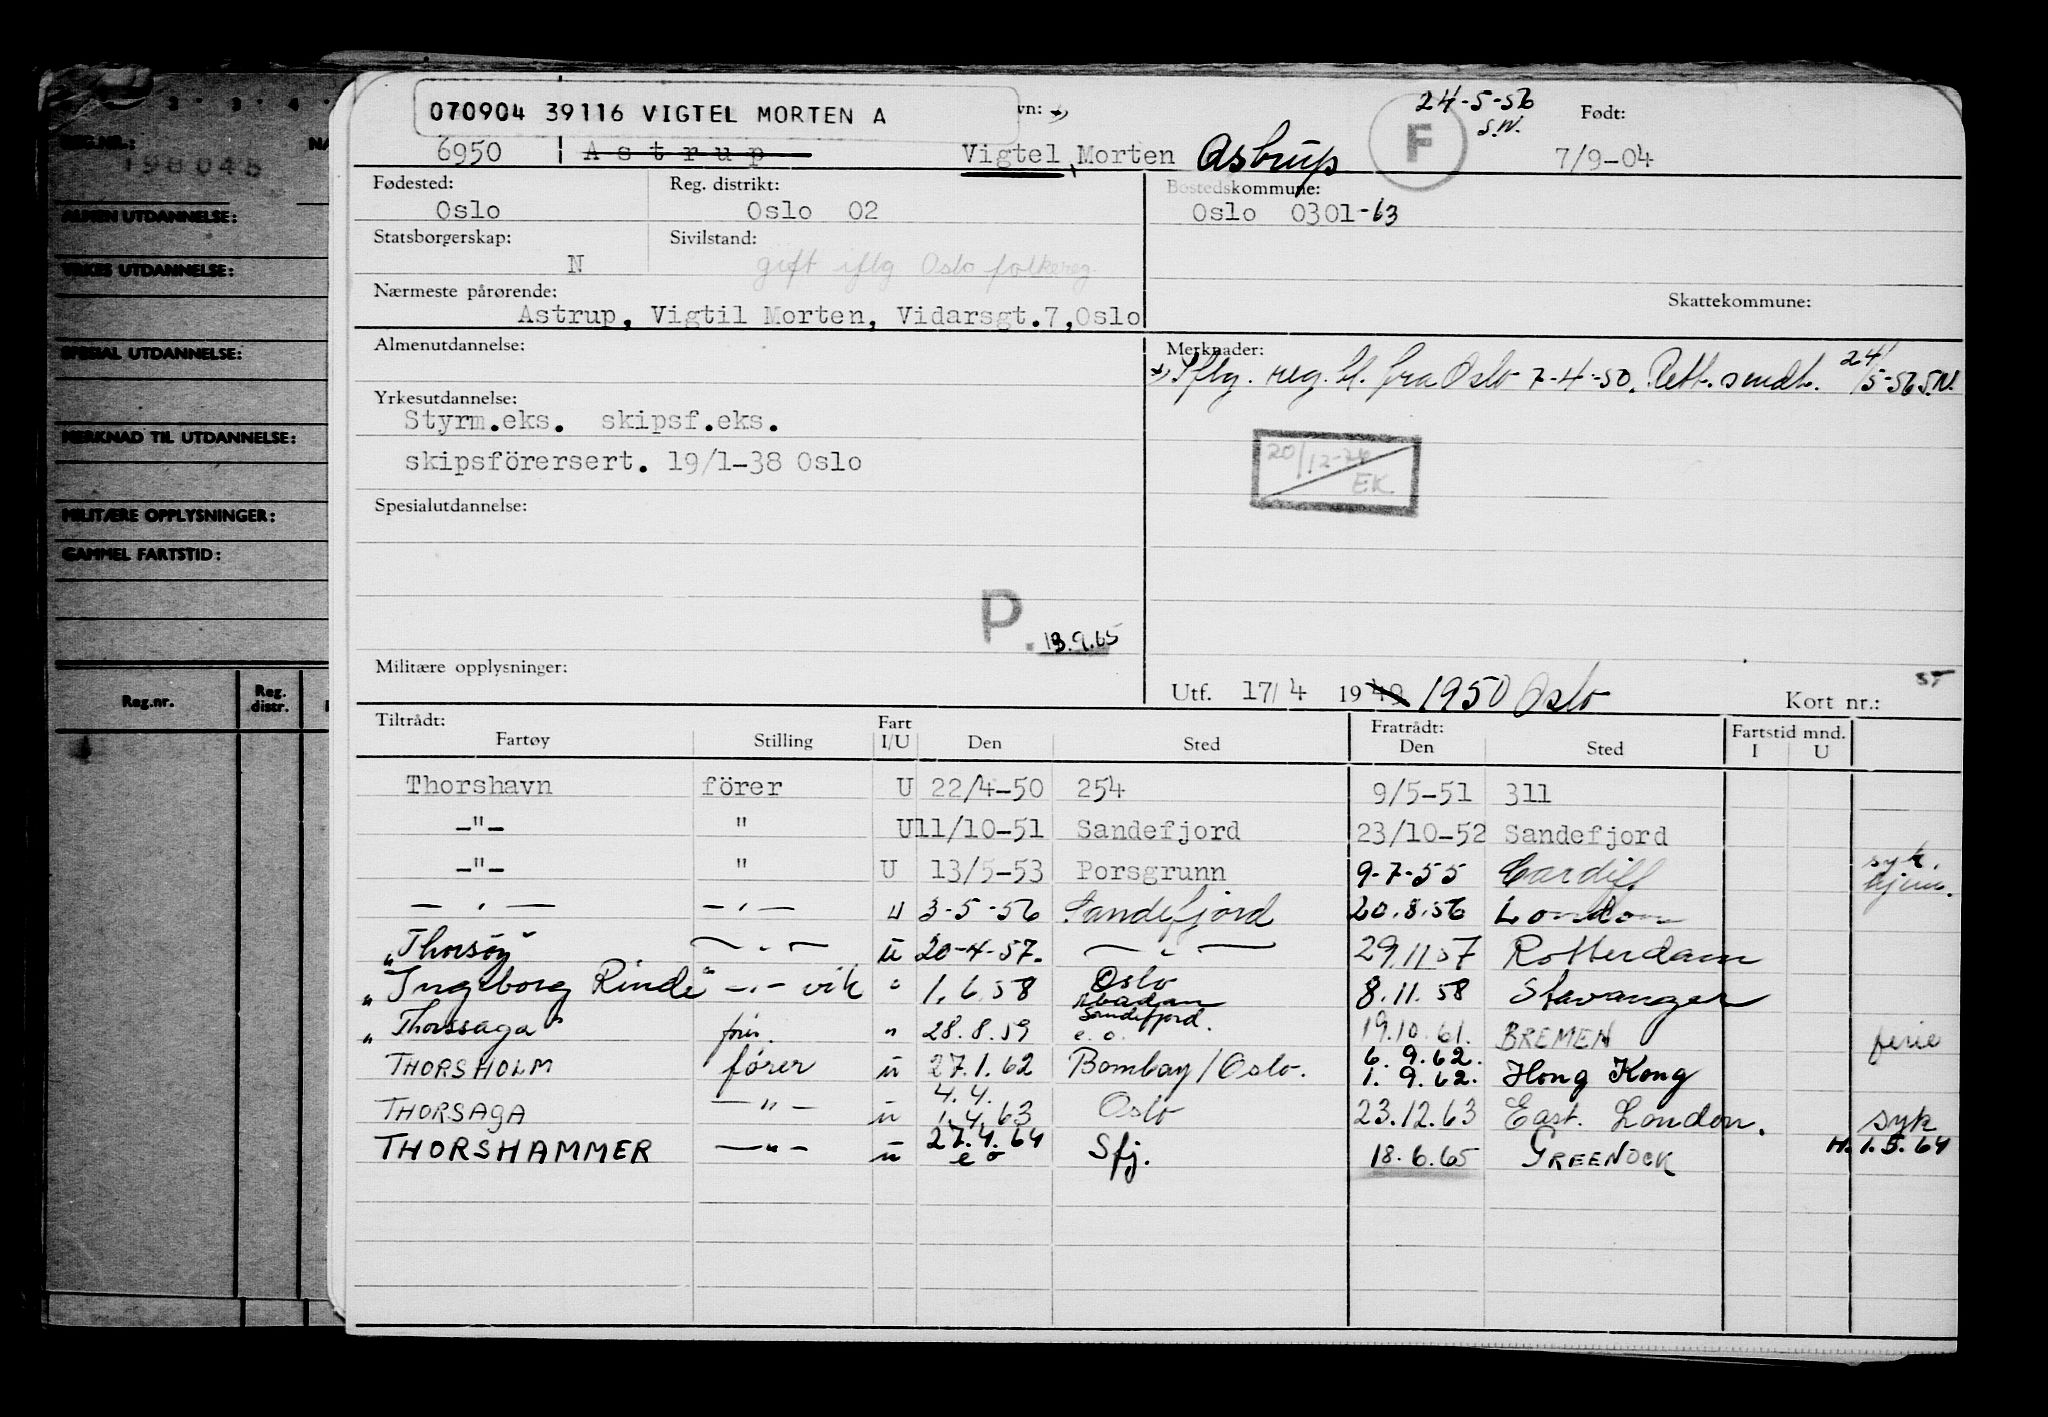 2 · 3 · 4 ·
REG.NR.: NA
198045
ALMEN UTDANNELSE:
YRKES UTDANNELSE:
SPESIAL UTDANNELSE:
MERKNAD TIL UTDANNELSE:
MILITÆRE OPPLYSNINGER:
GAMMEL FARTSTID:
Reg.nr. Reg. distr.
070904 39116 VIGTEL MORTEN A
vn: 24-5-56 S.N. Født:
6950 Astrup Vigtel, Morten Astrup F 7/9-04
Fødested: Reg. distrikt: Bostedskommune:
Oslo Oslo 02 Oslo 0301-63
Statsborgerskap: Sivilstand:
N gift iflg Oslo folkereg.
Nærmeste pårørende: Skattekommune:
Astrup, Vigtil Morten, Vidarsgt.7, Oslo
Almenutdannelse: Merknader:
Iflg. reg.bl. fra Oslo 7-4-50. Rett. sendt. 24/5-56 S.N.
Yrkesutdannelse:
Styrm.eks. skipsf.eks.
skipsförersert. 19/1-38 Oslo
20/12-76 EK
Spesialutdannelse:
P. 13.9.65
Militære opplysninger:
Utf. 17/4 1949 1950 Oslo Kort nr.:
Tiltrådt: Fart Fratrådt: Fartstid mnd.
Fartøy Stilling I/U Den Sted Den Sted I U
Thorshavn förer U 22/4-50 254 9/5-51 311
-"- " U 11/10-51 Sandefjord 23/10-52 Sandefjord
-"- " U 13/5-53 Porsgrunn 9-7-55 Cardiff syk. hjem.
— " — — " — u 3-5-56 Sandefjord 20.8.56 London
"Thorsøy" — " — u 20-4-57. — " — 29.11 57 Rotterdam
"Ingeborg Rinde" — " — vik " 1.6.58 Oslo 8.11.58 Stavanger
"Thorssaga" förer. " 28.8.59 Abadan Sandefjord. e.o. 19.10.61. BREMEN ferie
THORSHOLM fører u 27.1.62 Bombay/Oslo. 6.9.62. 1.9.62. Hong Kong
THORSAGA — " — u 4.4. 1.4.63 Oslo 23.12.63 East. London. syk
THORSHAMMER — " — u 27.4.64 e o Sfj. 18.6.65 GREENOCK H.1.5.64